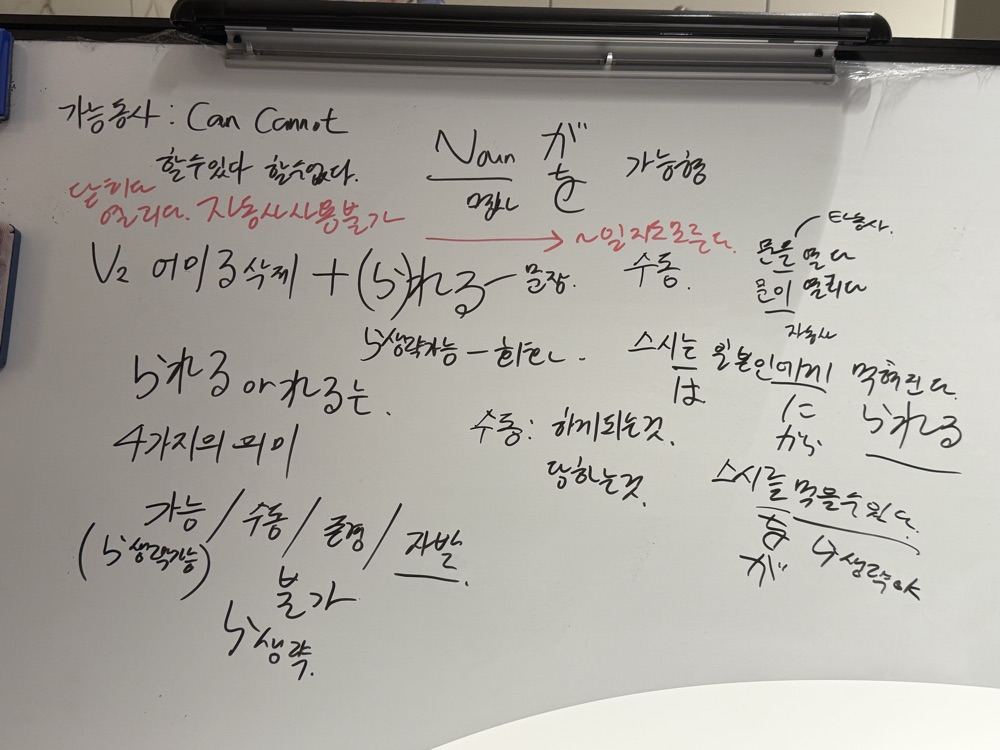 가능동사 : Can Cannot
할수있다 할수없다.
Noun が
を 가능형
명사
닫히다
열리다. 자동사사용불가 → ~일지도모른다.
V2 어미る삭제 + (ら)れる 문장. 수동.
타동사.
문을 열다
문이 열리다
자동사
ら생략가능 - 회화
られる or れる는.
4가지의 의미
가능 / 수동 / 존경 / 자발
(ら생략가능)
불가
ら생략.
스시는 일본인에게 먹혀진다.
は に られる
から
수동 : 하게되는것.
당하는것.
스시를 먹을수있다.
を ら생략
が